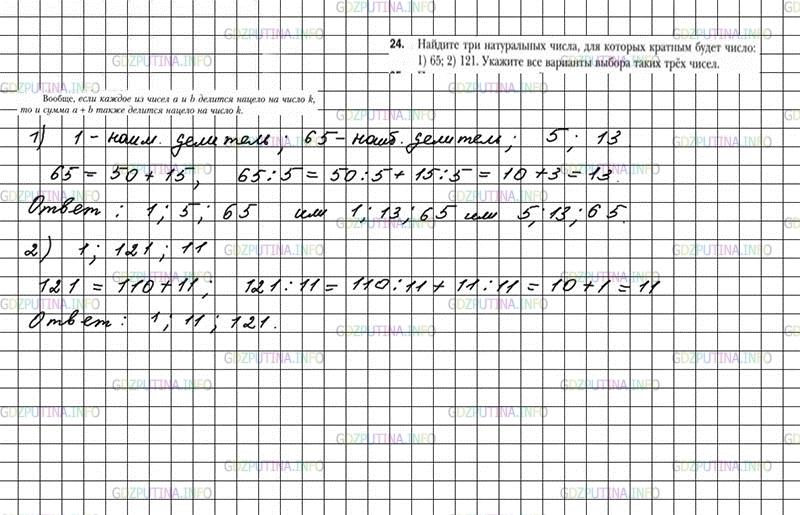 24. Найдите три натуральных числа, для которых кратным будет число:
1) 65; 2) 121. Укажите все варианты выбора таких трёх чисел.
Вообще, если каждое из чисел a и b делится нацело на число k,
то и сумма a + b также делится нацело на число k.
1) 1 - наим. делитель; 65 - наиб. делитель; 5; 13
65 = 50 + 15, 65 : 5 = 50 : 5 + 15 : 5 = 10 + 3 = 13.
Ответ: 1; 5; 65 или 1; 13; 65 или 5; 13; 65.
2) 1; 121; 11
121 = 110 + 11; 121 : 11 = 110 : 11 + 11 : 11 = 10 + 1 = 11
Ответ: 1; 11; 121.
GDZPUTINA.INFO